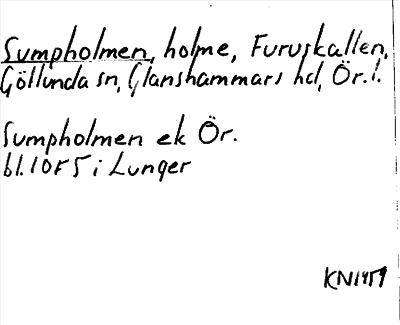 Sumpholmen, holme, Furuskallen,
Göllunda sn, Glanshammars hd, Ör. l.
Sumpholmen ek Ör.
bl. 10F5 i Lunger
KN1959